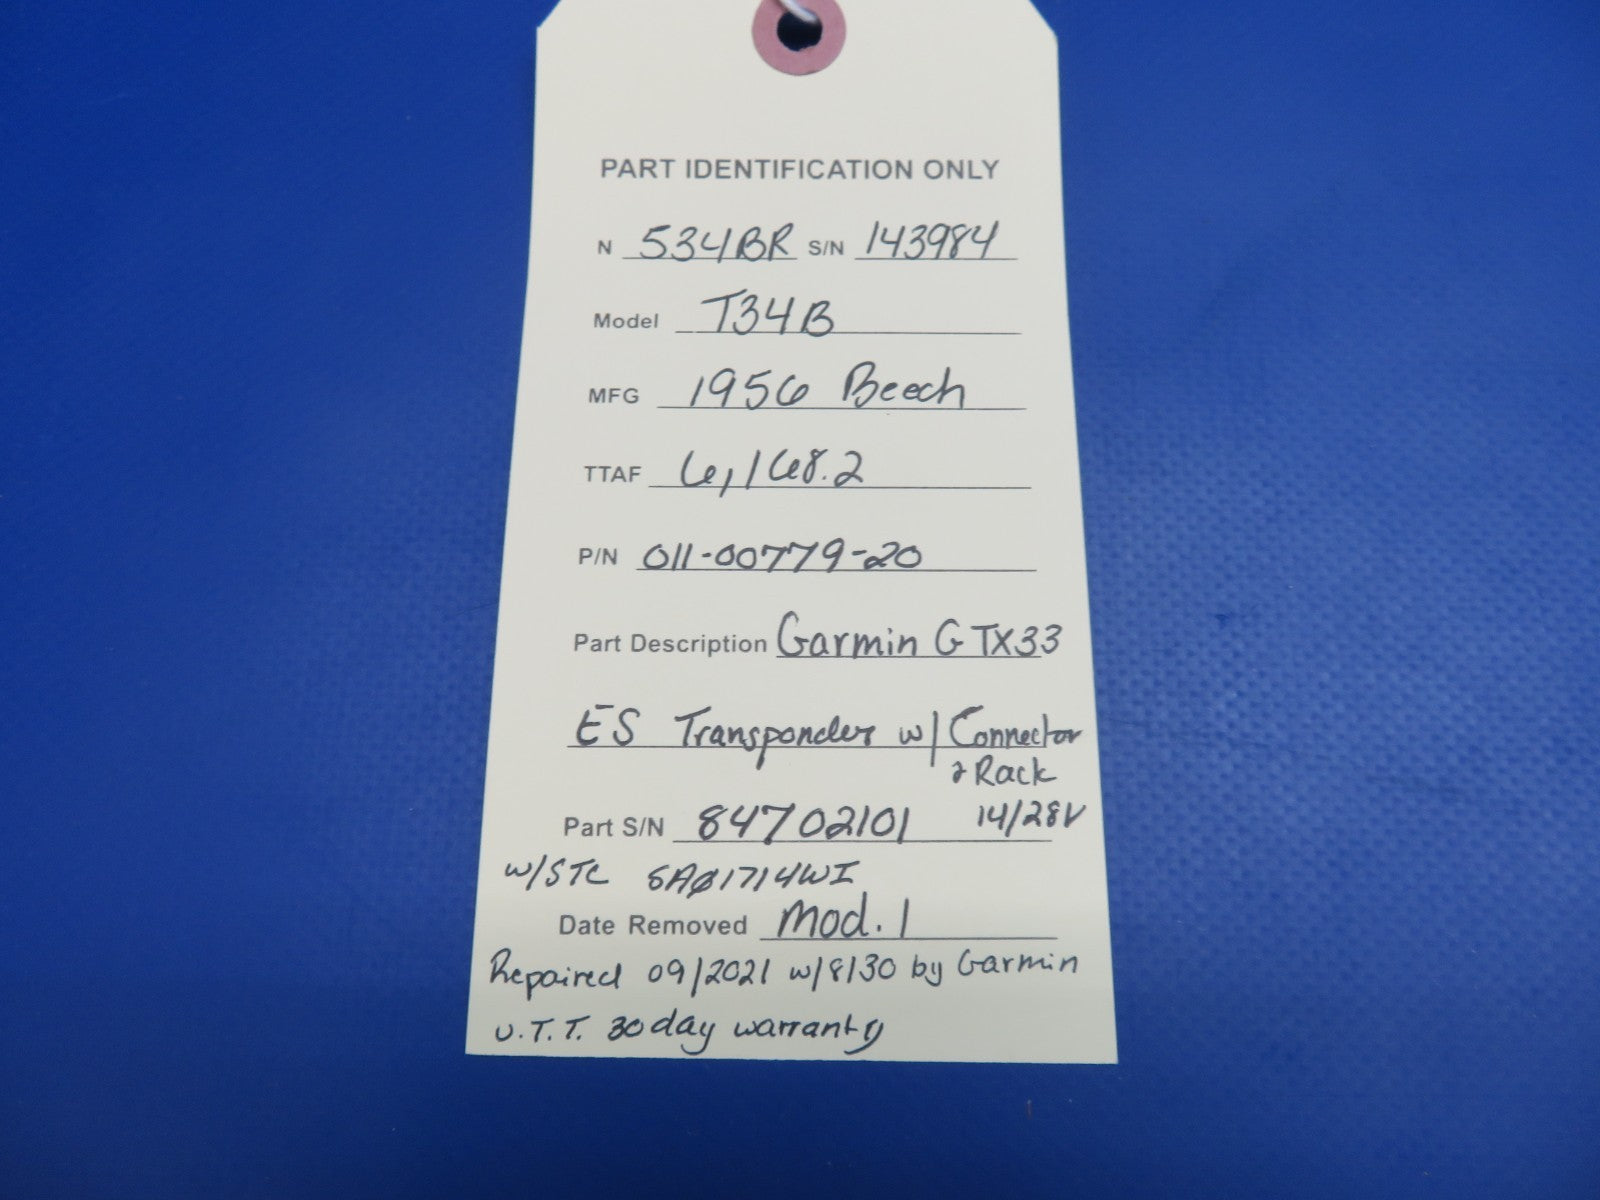 PART IDENTIFICATION ONLY
N 534BR S/N 143984
Model T34B
MFG 1956 Beech
TTAF 6,168.2
P/N 011-00779-20
Part Description Garmin GTX33
ES Transponder w/ Connector
& Rack
Part S/N 84702101 14/28V
w/STC SAØ1714WI
Date Removed Mod. 1
Repaired 09/2021 w/8130 by Garmin
U.T.T. 30 day warranty